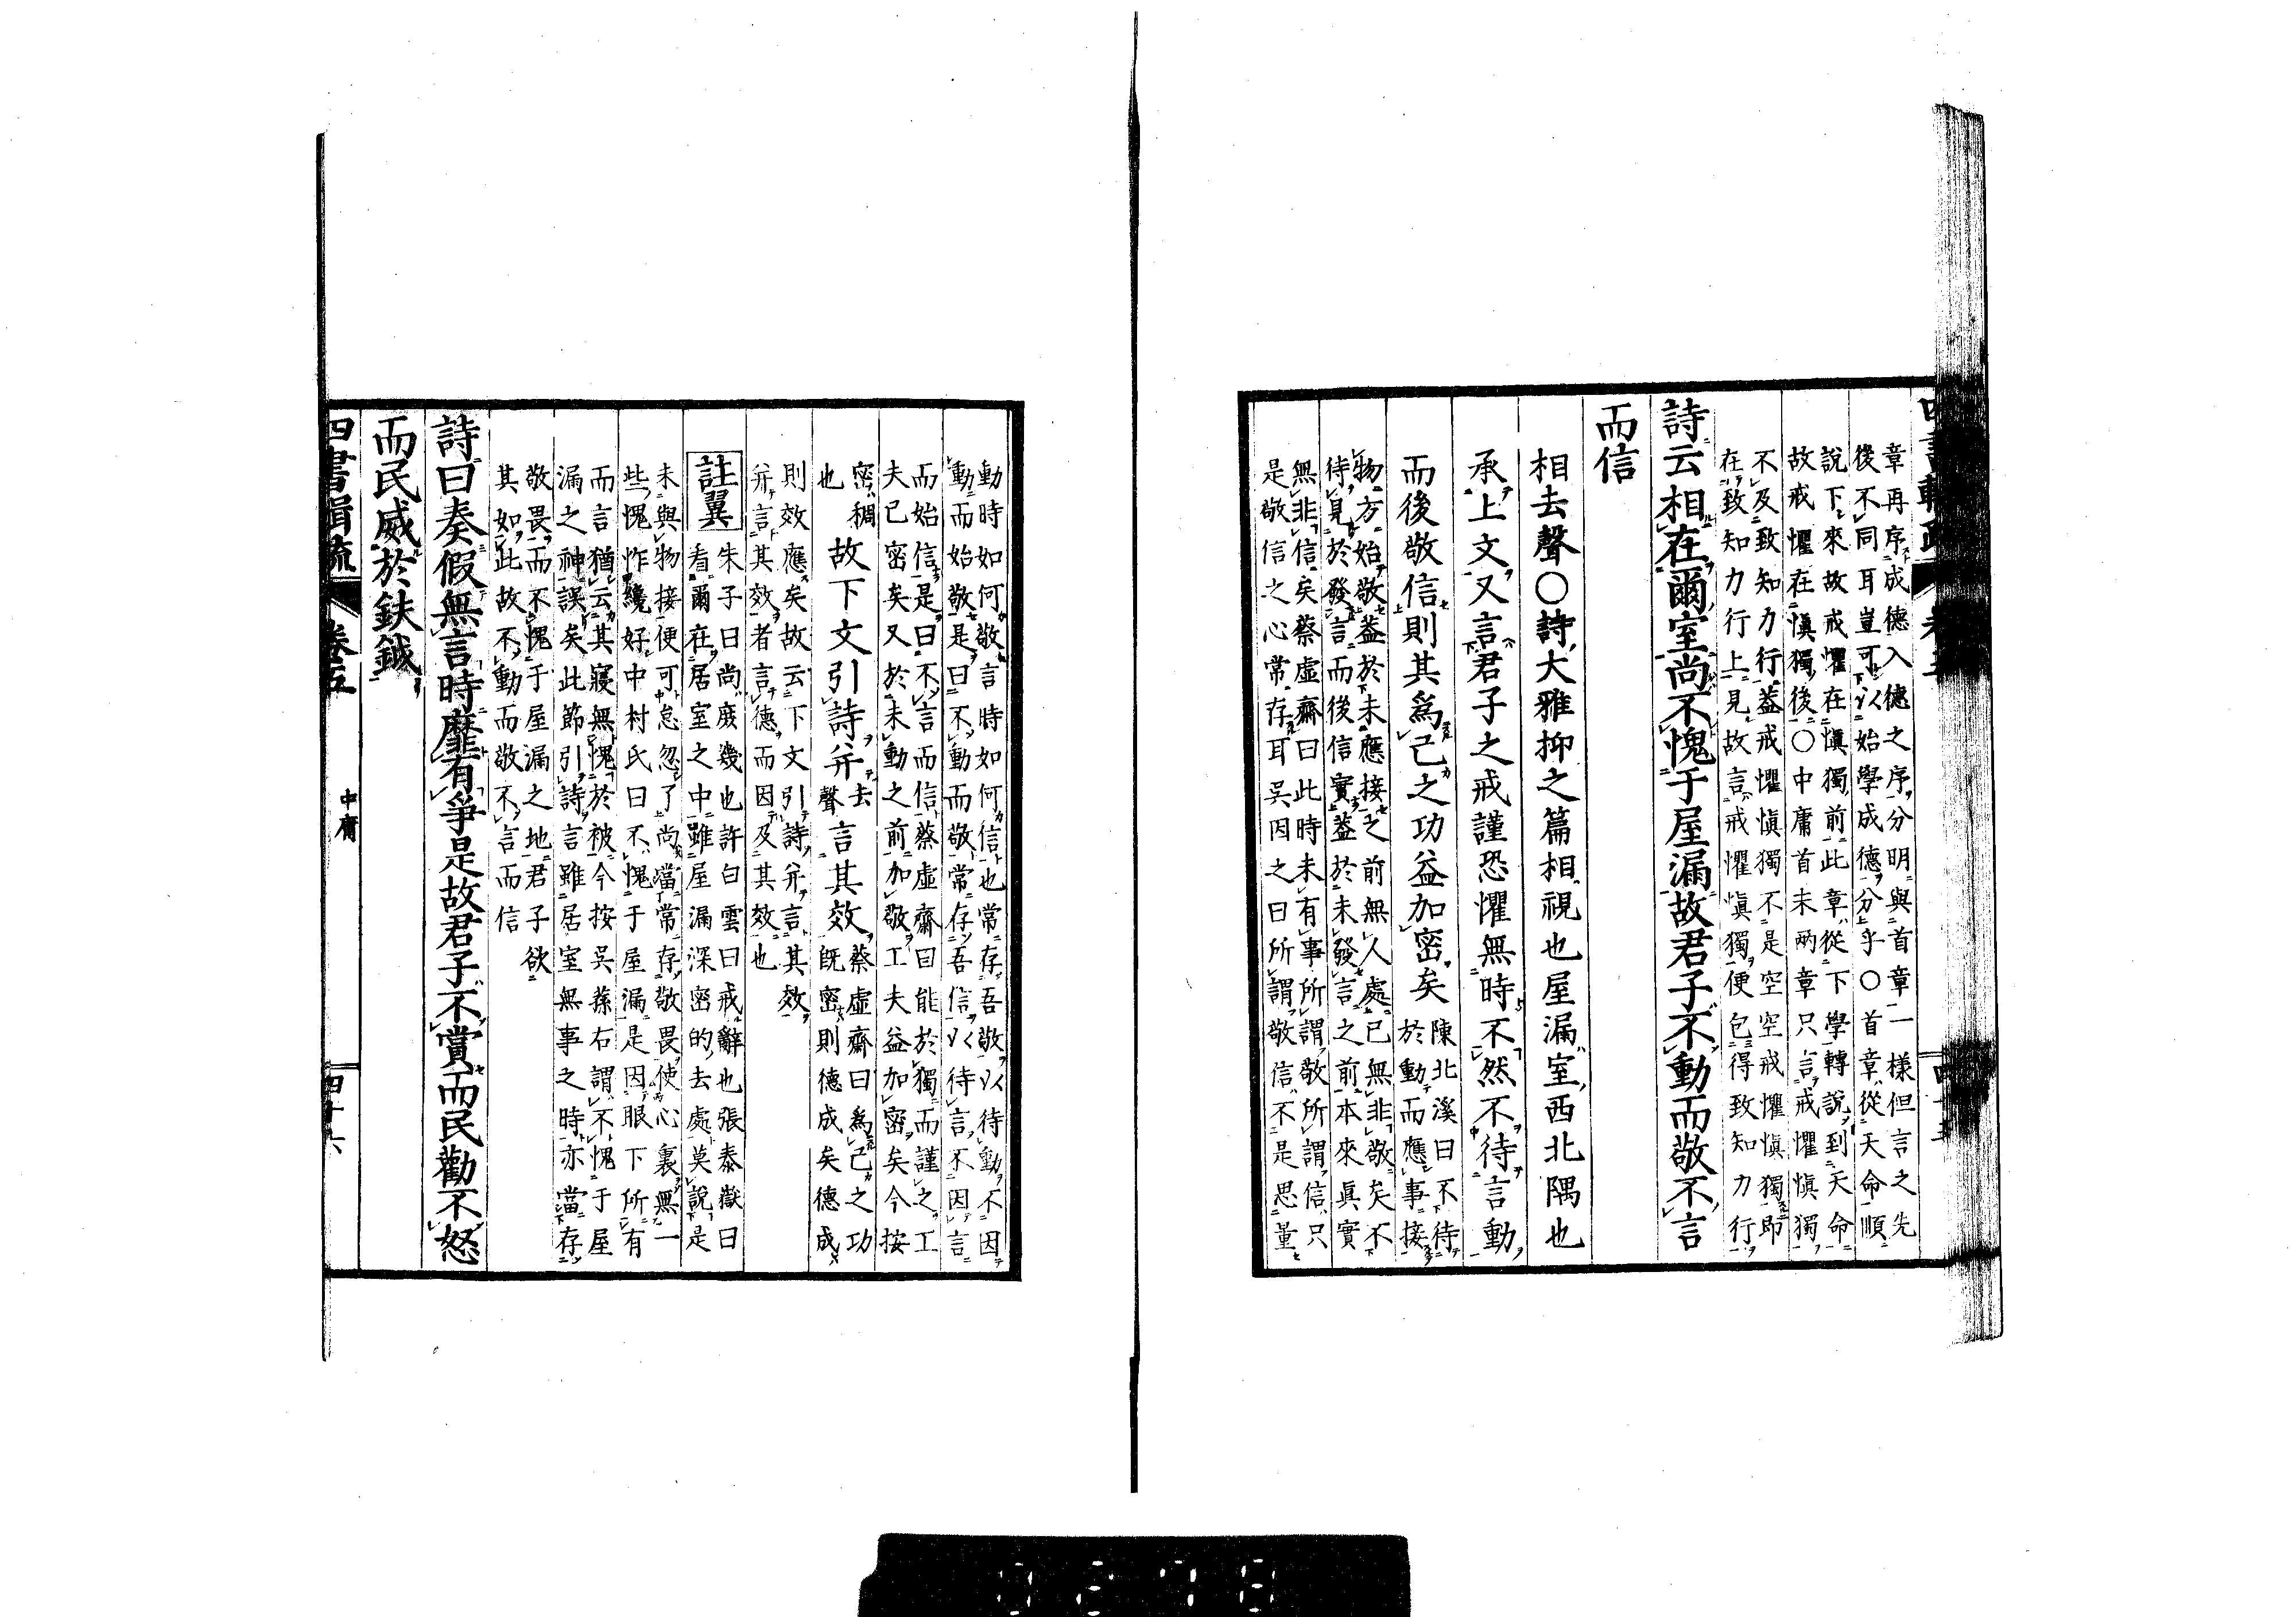 章再序成德入德之序分明與首章一樣但言之先
後不同耳豈可以始學成德分乎〇首章從天命順
說下來故戒懼在愼獨前此章從下學轉說到天命
故戒懼在愼獨後〇中庸首末兩章只言戒懼愼獨
不及致知力行葢戒懼愼獨不是空空戒懼愼獨卽
在致知力行上見故言戒懼愼獨便包得致知力行
詩云相在爾室尚不愧于屋漏故君子不動而敬不言
而信
相去聲〇詩大雅抑之篇相視也屋漏室西北隅也
承上文又言君子之戒謹恐懼無時不然不待言動
而後敬信則其爲己之功益加密矣
陳北溪曰不待
於動而應事接
物方始敬葢於未應接之前無人處已無非敬矣不
待見於發言而後信實葢於未發言之前本來眞實
無非信矣蔡虛齋曰此時未有事所謂敬所謂信只
是敬信之心常存耳吳因之曰所謂敬信不是思量
動時如何敬言時如何信也常存吾敬以待動不因
動而始敬是曰不動而敬常存吾信以待言不因言
而始信是曰不言而信蔡虛齋曰能於獨而謹之工
夫已密矣又於未動之前加敬工夫益加密矣今按
密稠
也
故下文引詩幷
去
聲
言其效
蔡虛齋曰爲己之功
旣密則德成矣德成
則效應矣故云下文引詩幷言其效
幷言其效者言德而因及其效也
註翼
朱子曰尚庻幾也許白雲曰戒辭也張泰嶽曰
看爾在居室之中雖屋漏深密的去處莫說是
未與物接便可怠忽了尚當常存敬畏使心裏無一
些愧怍纔好中村氏曰不愧于屋漏是因眼下所有
而言猶云其寢無愧於被今按吳蓀右謂不愧于屋
漏之神誤矣此節引詩言雖居室無事之時亦當存
敬畏而不愧于屋漏之地君子欲
其如此故不動而敬不言而信
詩曰奏假無言時靡有爭是故君子不賞而民勸不怒
而民威於鈇鉞
四書輯疏
卷五
中庸
四十六